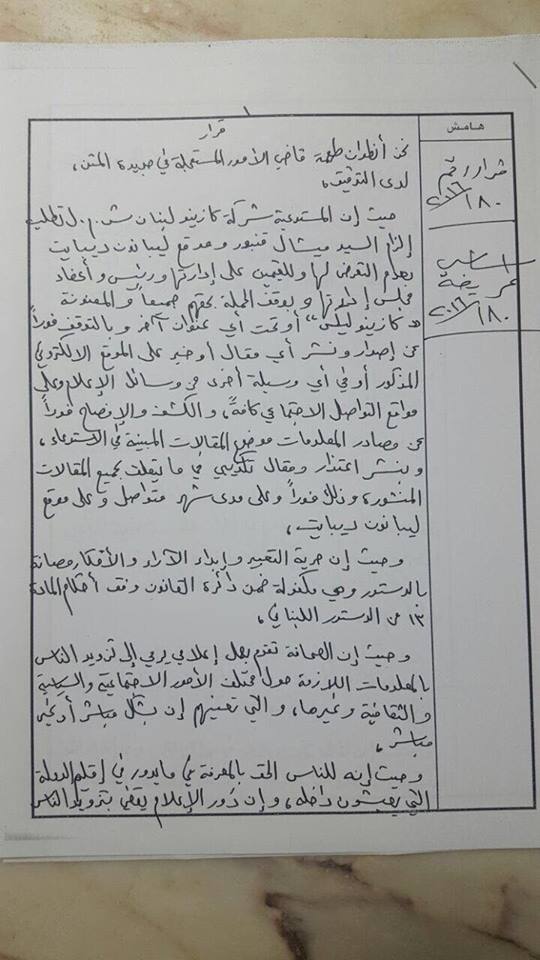 ١
قرار
هامش
قرار رقم
١٨٠/٢٠١٦
أساس
عريضة
١٨٠/٢٠١٦
نحن أنطوان طعمة قاضي الأمور المستعجلة في جديدة المتن،
لدى التدقيق،
حيث إن المستدعية شركة كازينو لبنان ش.م.ل تطلب
إلزام السيد ميشال قنبور وموقع ليبانون ديبايت
بعدم التعرض لها وللقيمين على إدارتها ورئيس وأعضاء
مجلس إدارتها وبوقف الحملة بحقهم جميعاً والمعنونة
"كازينو ليكس" أو تحت أي عنوان آخر وبالتوقف فوراً
عن إصدار ونشر أي مقال أو خبر على الموقع الالكتروني
المذكور أو في أي وسيلة أخرى من وسائل الإعلام وعلى
مواقع التواصل الاجتماعي كافةً، والكشف والإفصاح فوراً
عن مصادر المعلومات موضوع المقالات المبينة في الاستدعاء،
وبنشر اعتذار ومقال تكذيبي في ما يتعلق بجميع المقالات
المنشورة وذلك فوراً وعلى مدى شهر متواصل وعلى موقع
ليبانون ديبايت،
وحيث إن حرية التعبير وإبداء الآراء والأفكار مصانة
بالدستور وهي مكفولة ضمن دائرة القانون وفق أحكام المادة
١٣ من الدستور اللبناني،
وحيث إن الصحافة تقوم بعمل إعلامي يرمي إلى تزويد الناس
بالمعلومات اللازمة حول مختلف الأمور الاجتماعية والسياسية
والثقافية وغيرها، والتي تعنيهم إن بشكل مباشر أو غير
مباشر،
وحيث إنه للناس الحق بالمعرفة عن ما يدور في إقليم الدولة
التي يعيشون داخله، وإن دور الإعلام يقضي بتزويد الناس